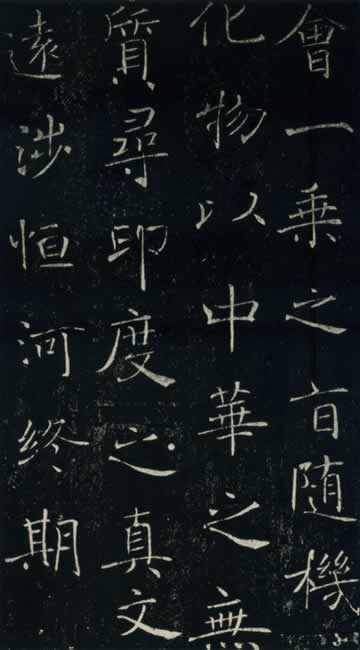 會一乘之旨隨機
化物以中華之無
質尋印度之真文
遠涉恒河終期